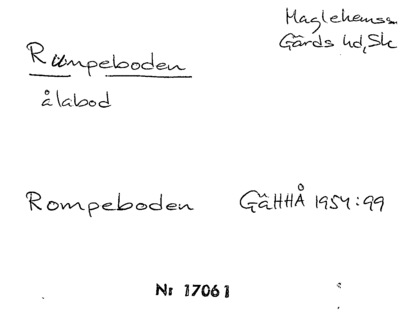 Maglehemss.
Gärds hd, Sk
Rumpeboden
ålabod
Rompeboden GäHHÅ 1954:99
Nr 17061